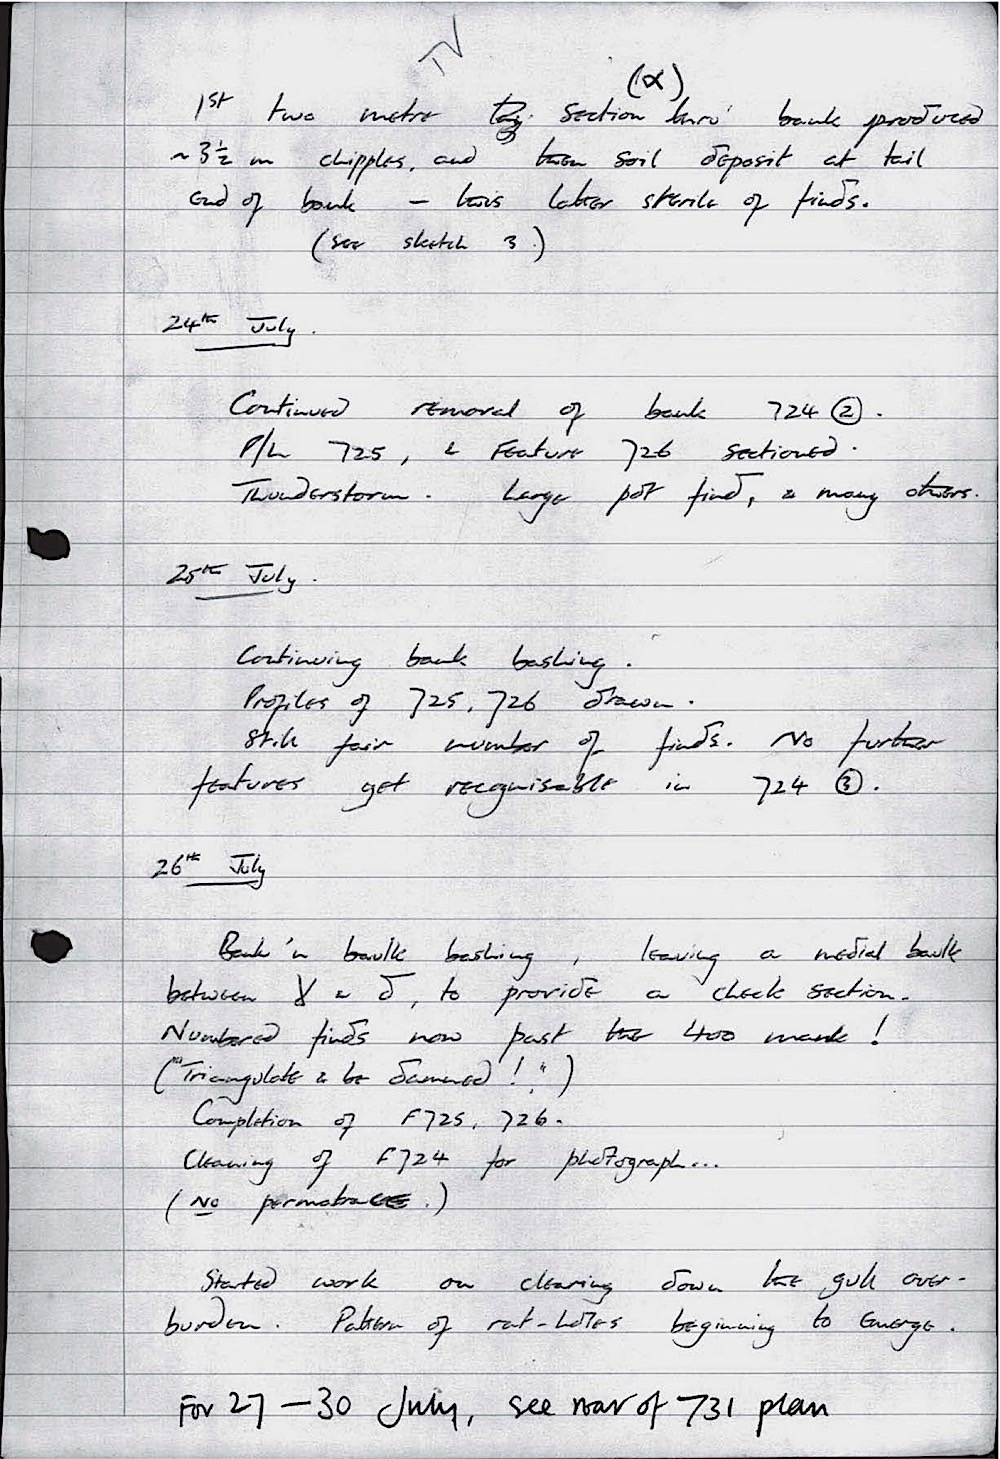 IV
(α)
1st two metre section thro' bank produced
~3½ m chipples, and then soil deposit at tail
end of bank – this latter sterile of finds.
(see sketch 3)
24th July.
Continued removal of bank 724 ②.
P/h 725, & Feature 726 sectioned.
Thunderstorm. Large pot find, & many others.
25th July.
Continuing bank bashing.
Profiles of 725, 726 drawn.
Still fair number of finds. No further
features yet recognisable in 724 ③.
26th July
Bank 'n baulk bashing, leaving a medial baulk
between γ & δ, to provide a check section.
Numbered finds now past the 400 mark!
("Triangulate & be damned!")
Completion of F725, 726.
Cleaning of F724 for photograph...
(No permatrace.)
Started work on clearing down the gull over-
burden. Pattern of rat-holes beginning to emerge.
For 27 – 30 July, see rear of 731 plan